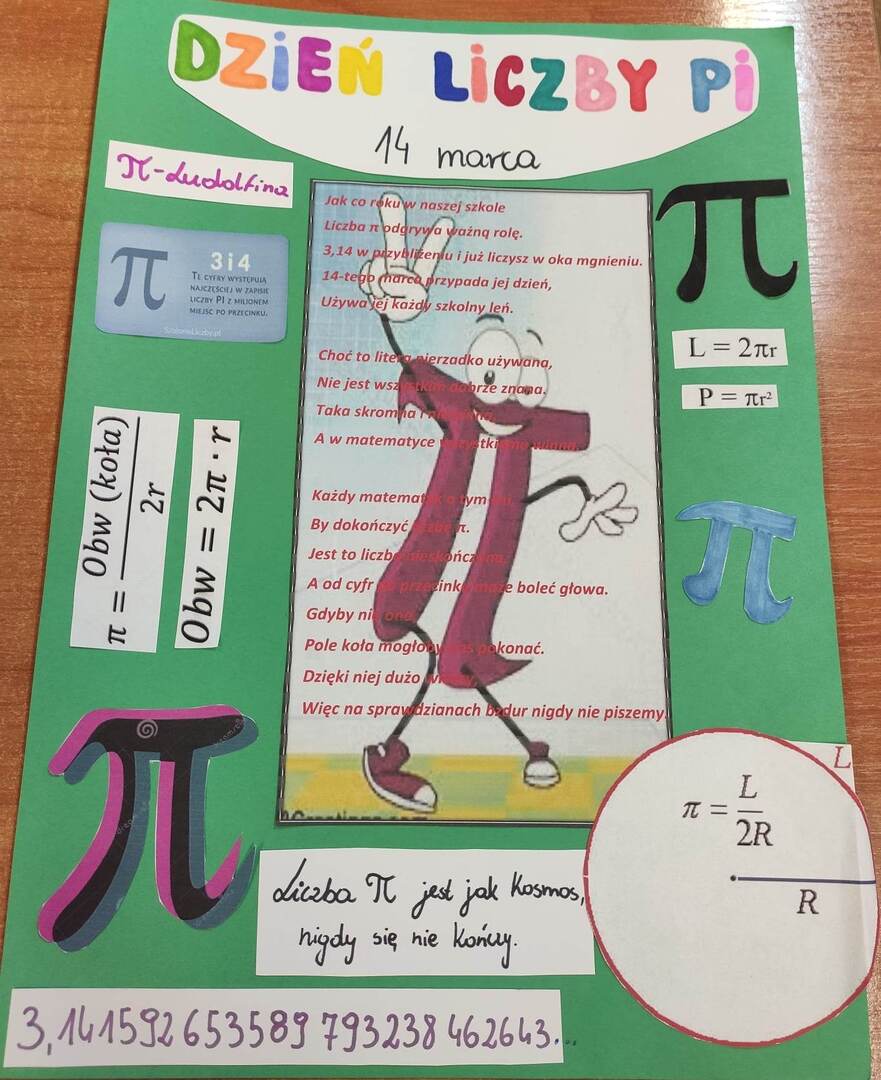 DZIEŃ LICZBY Pi
14 marca
π-Ludolfina
3 i 4
TE CYFRY WYSTĘPUJĄ
NAJCZĘŚCIEJ W ZAPISIE
LICZBY PI Z MILIONEM
MIEJSC PO PRZECINKU.
SzaloneLiczby.pl
Jak co roku w naszej szkole
Liczba π odgrywa ważną rolę.
3,14 w przybliżeniu i już liczysz w oka mgnieniu.
14-tego marca przypada jej dzień,
Używa jej każdy szkolny leń.
Choć to litera nierzadko używana,
Nie jest wszystkim dobrze znana.
Taka skromna i
A w matematyce wszystkiemu winna.
Każdy matematyk o tym
By dokończyć liczbę π.
Jest to liczba nieskończona,
A od cyfr po przecinku może boleć głowa.
Gdyby nie ona,
Pole koła mogłoby nas pokonać.
Dzięki niej dużo wiemy,
Więc na sprawdzianach bzdur nigdy nie piszemy.
π
L = 2πr
P = πr²
π = Obw (koła) / 2r
Obw = 2π · r
π
π
L
π = L / 2R
R
Liczba π jest jak Kosmos,
nigdy się nie kończy.
3,141592653589793238462643...